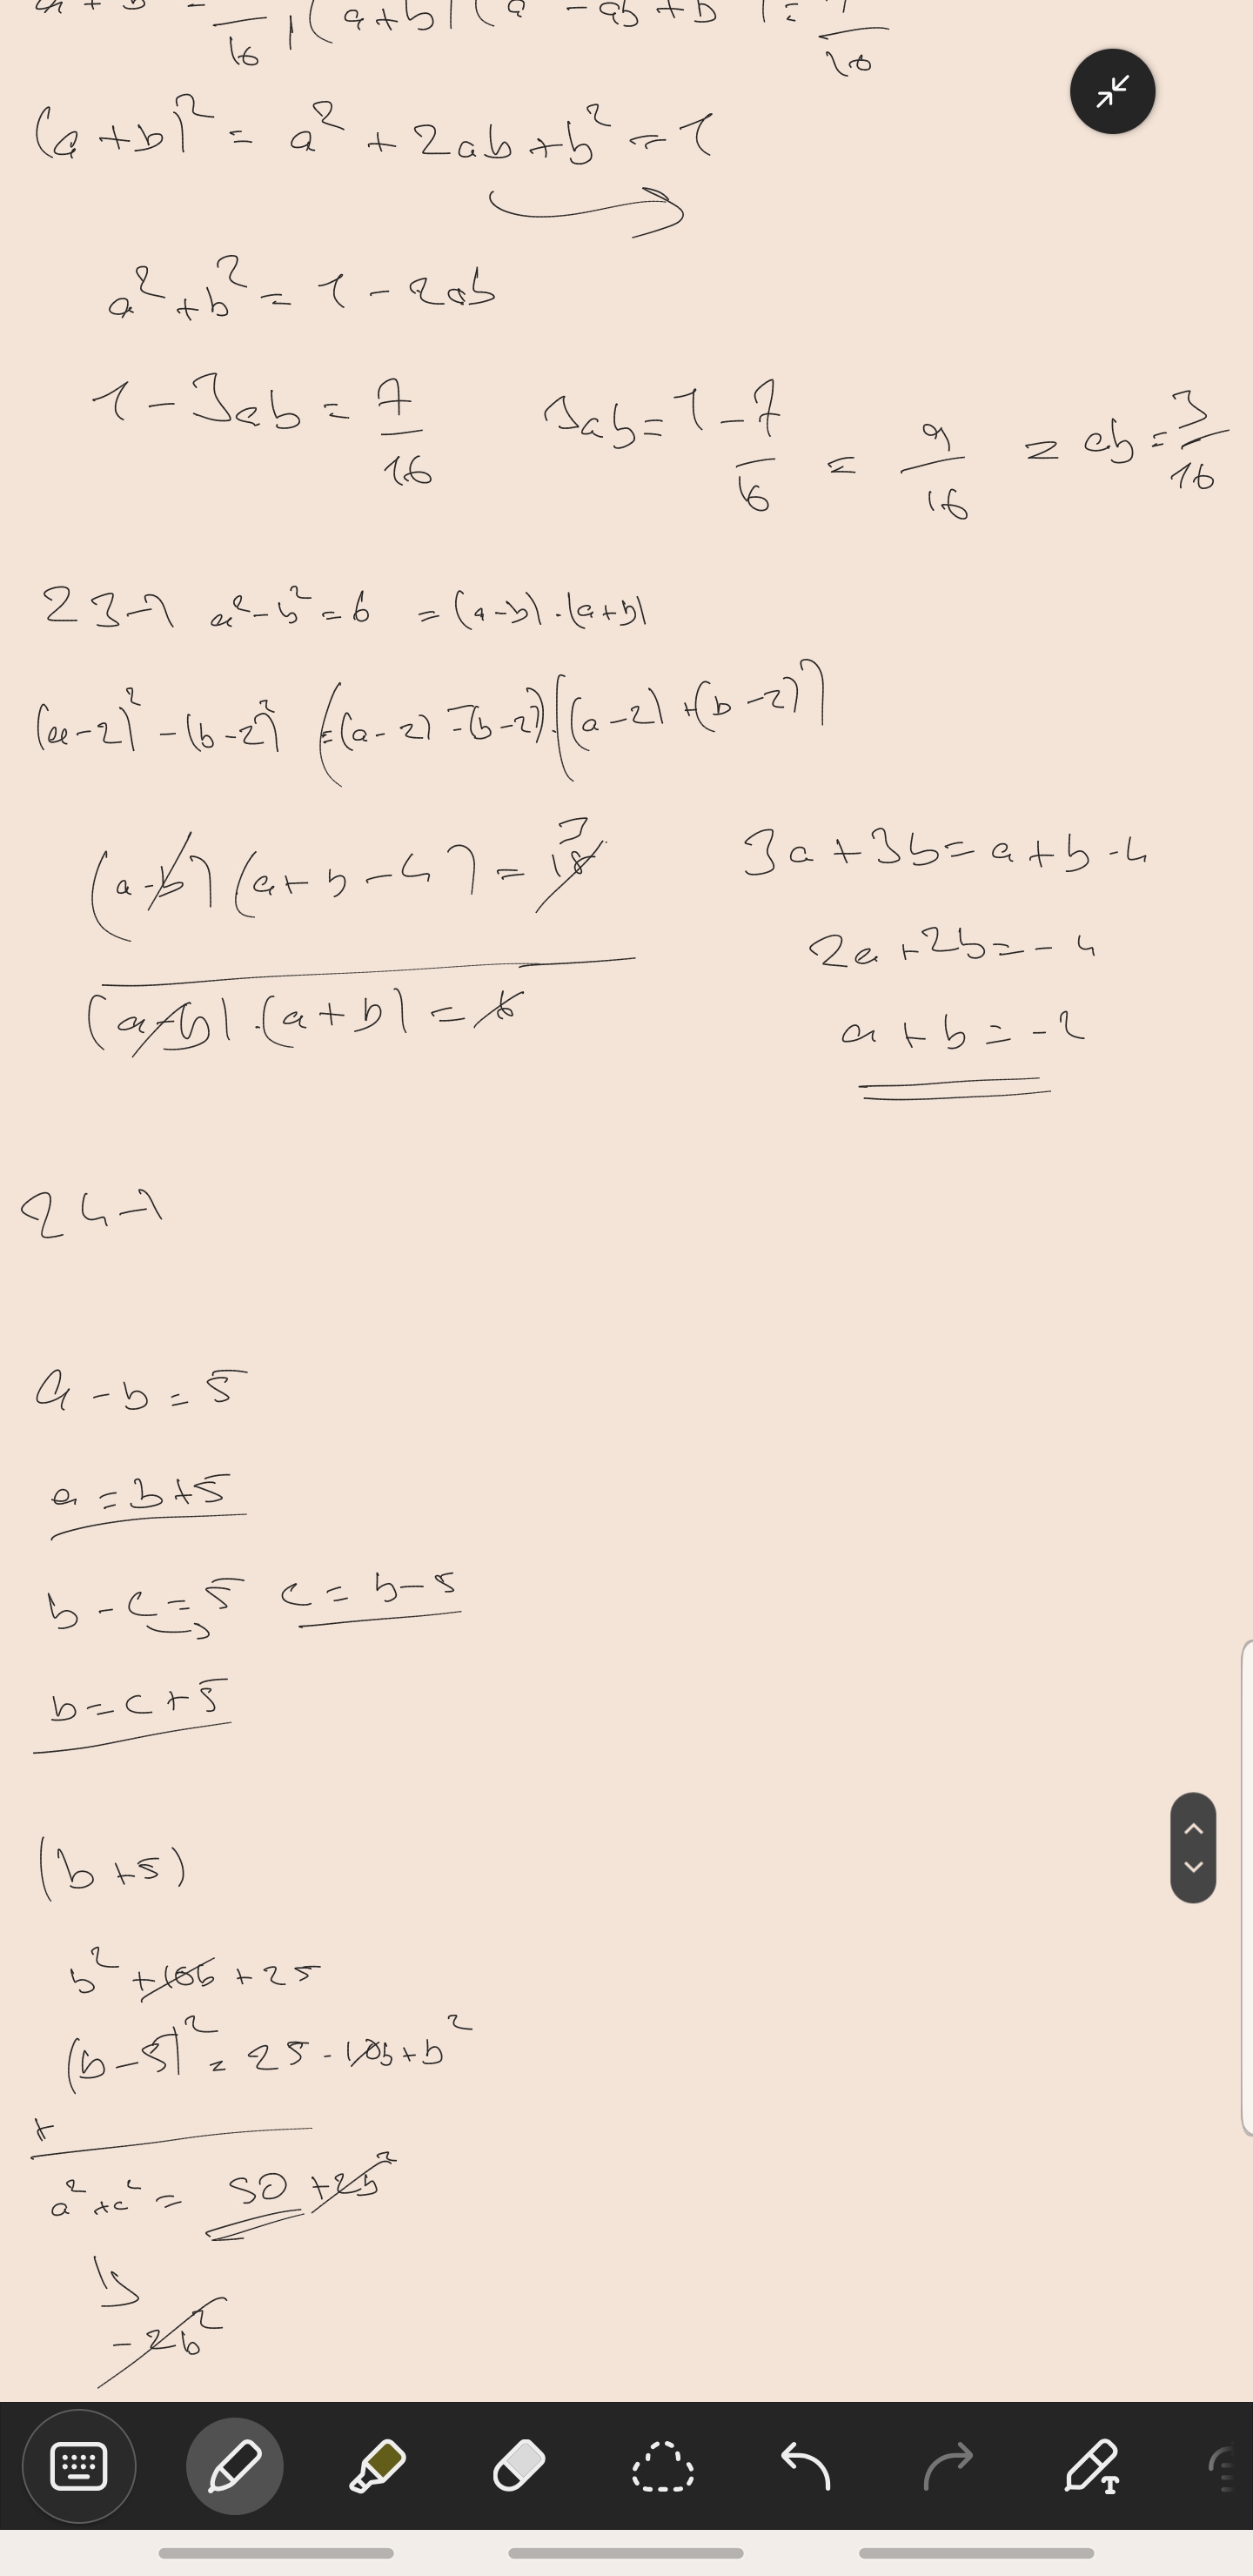 16 (a+b)(a² - ab + b²) = 7/16
(a+b)² = a² + 2ab + b² = 1
a² + b² = 1 - 2ab
1 - 3ab = 7/16 3ab = 1 - 7/16 = 9/16 = ab = 3/16
23-) a² - b² = 6 = (a-b).(a+b)
(a-2)² - (b-2)² = ((a-2) - (b-2)).((a-2) + (b-2))
(a-b)(a+b-4) = 18 3
(a-b).(a+b) = 6
3a + 3b = a + b - 4
2a + 2b = -4
a + b = -2
24-)
a - b = 5
a = b + 5
b - c = 5 c = b - 5
b = c + 5
(b + 5)
b² + 10b + 25
(b - 5)² = 25 - 10b + b²
+
a² + c² = 50 + 2b²
- 2b²
T